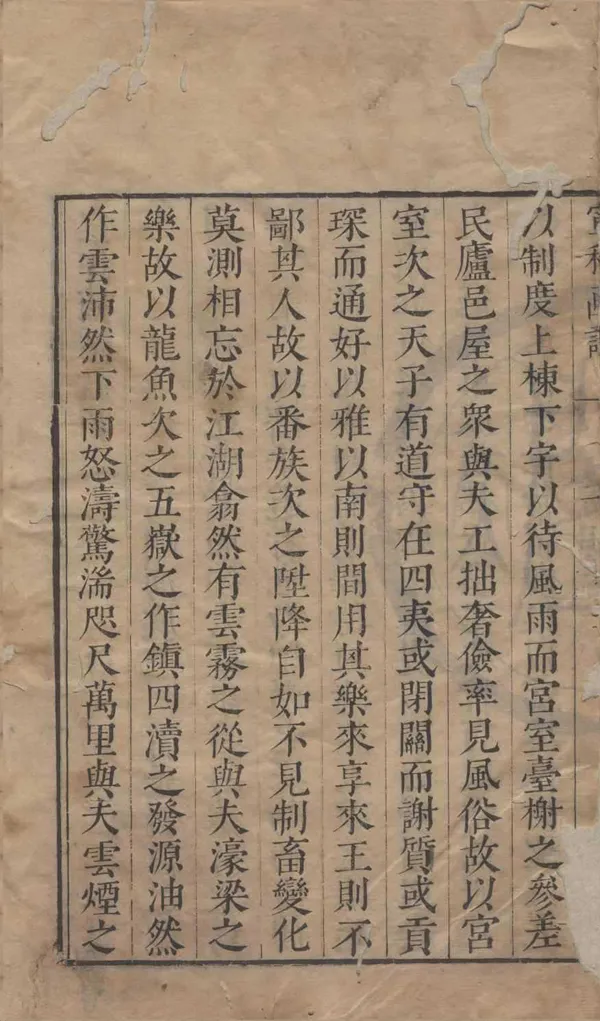 以制度上棟下字以待風雨而宮室臺榭之參差
民廬邑屋之衆與夫工拙奢儉率見風俗故以宮
室次之天子有道守在四夷或閉關而謝質或貢
琛而通好以雅以南則間用其樂來享來王則不
鄙其人故以番族次之陞降自如不見制畜變化
莫測相忘於江湖翕然有雲霧之從與夫濠梁之
樂故以龍魚次之五嶽之作鎮四瀆之發源油然
作雲沛然下雨怒濤驚湍咫尺萬里與夫雲煙之